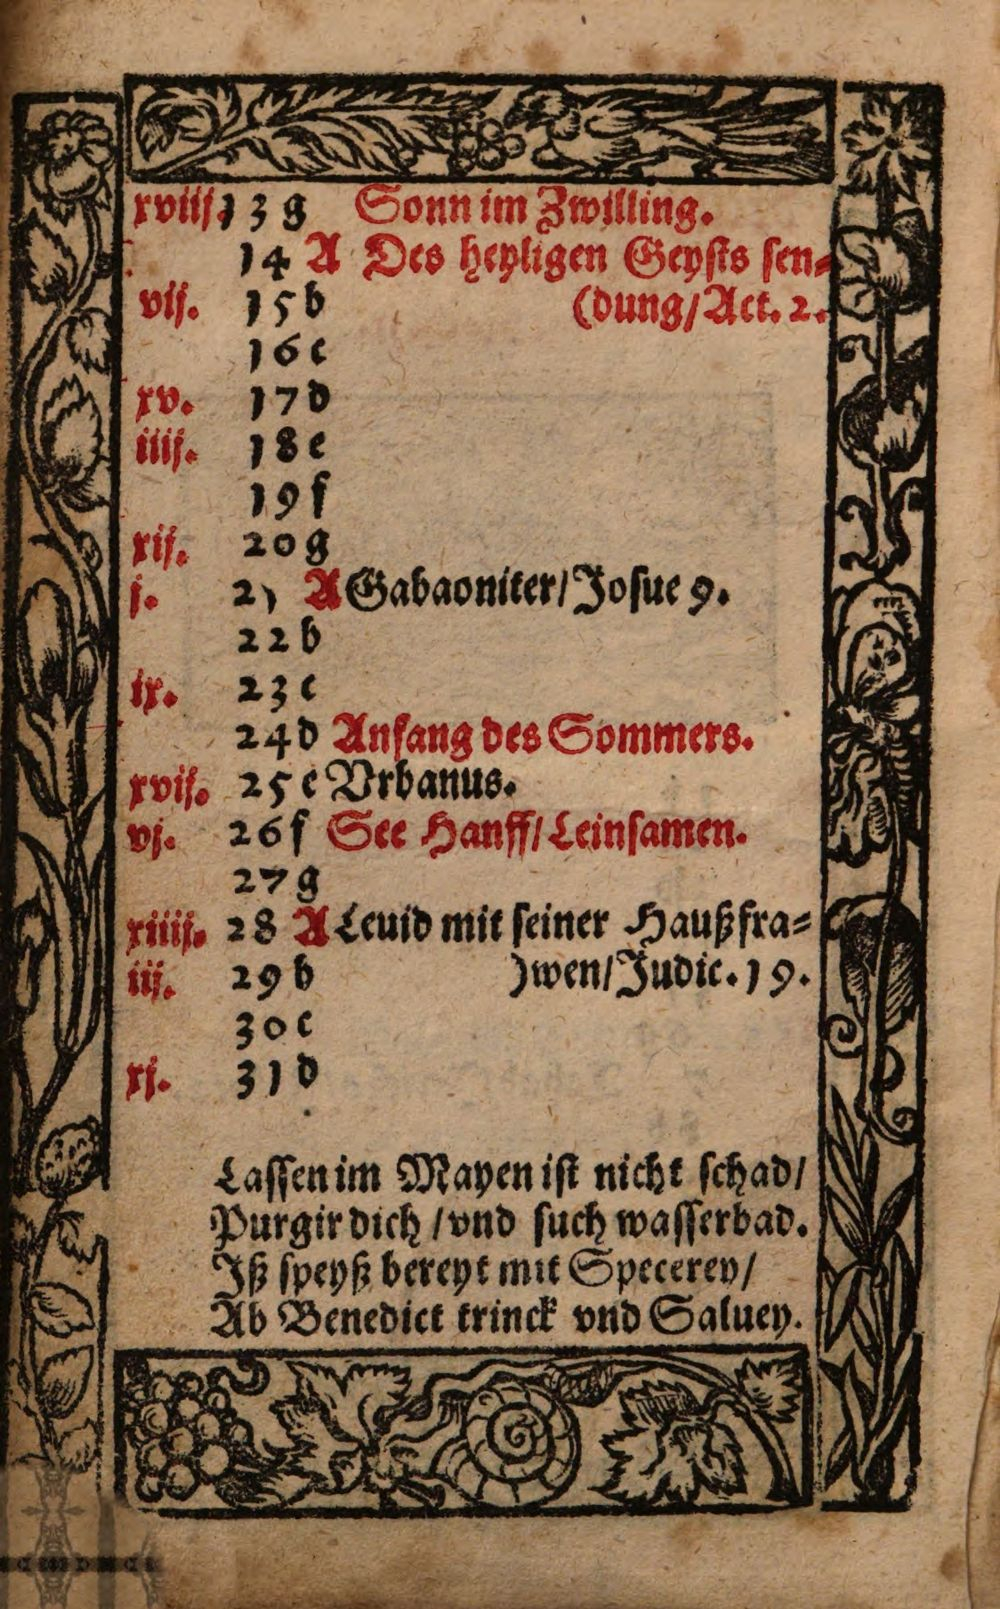 xviij. 13 g Sonn im Zwilling.
14 A Des heyligen Geysts sen⸗
vij. 15 b (dung/Act. 2.
16 c
xv. 17 d
iiij. 18 e
19 f
xij. 20 g
j. 21 A Gabaoniter/Josue 9.
22 b
ix. 23 c
24 d Anfang des Sommers.
xvij. 25 e Vrbanus.
vj. 26 f See Hanff/Leinsamen.
27 g
xiiij. 28 A Leuid mit seiner Haußfra⸗
iij. 29 b )wen/Judic. 19.
30 c
xj. 31 d
Lassen im Mayen ist nicht schad/
Purgir dich/vnd such wasserbad.
Iß speyß bereyt mit Specerey/
Ab Benedict trinck vnd Saluey.